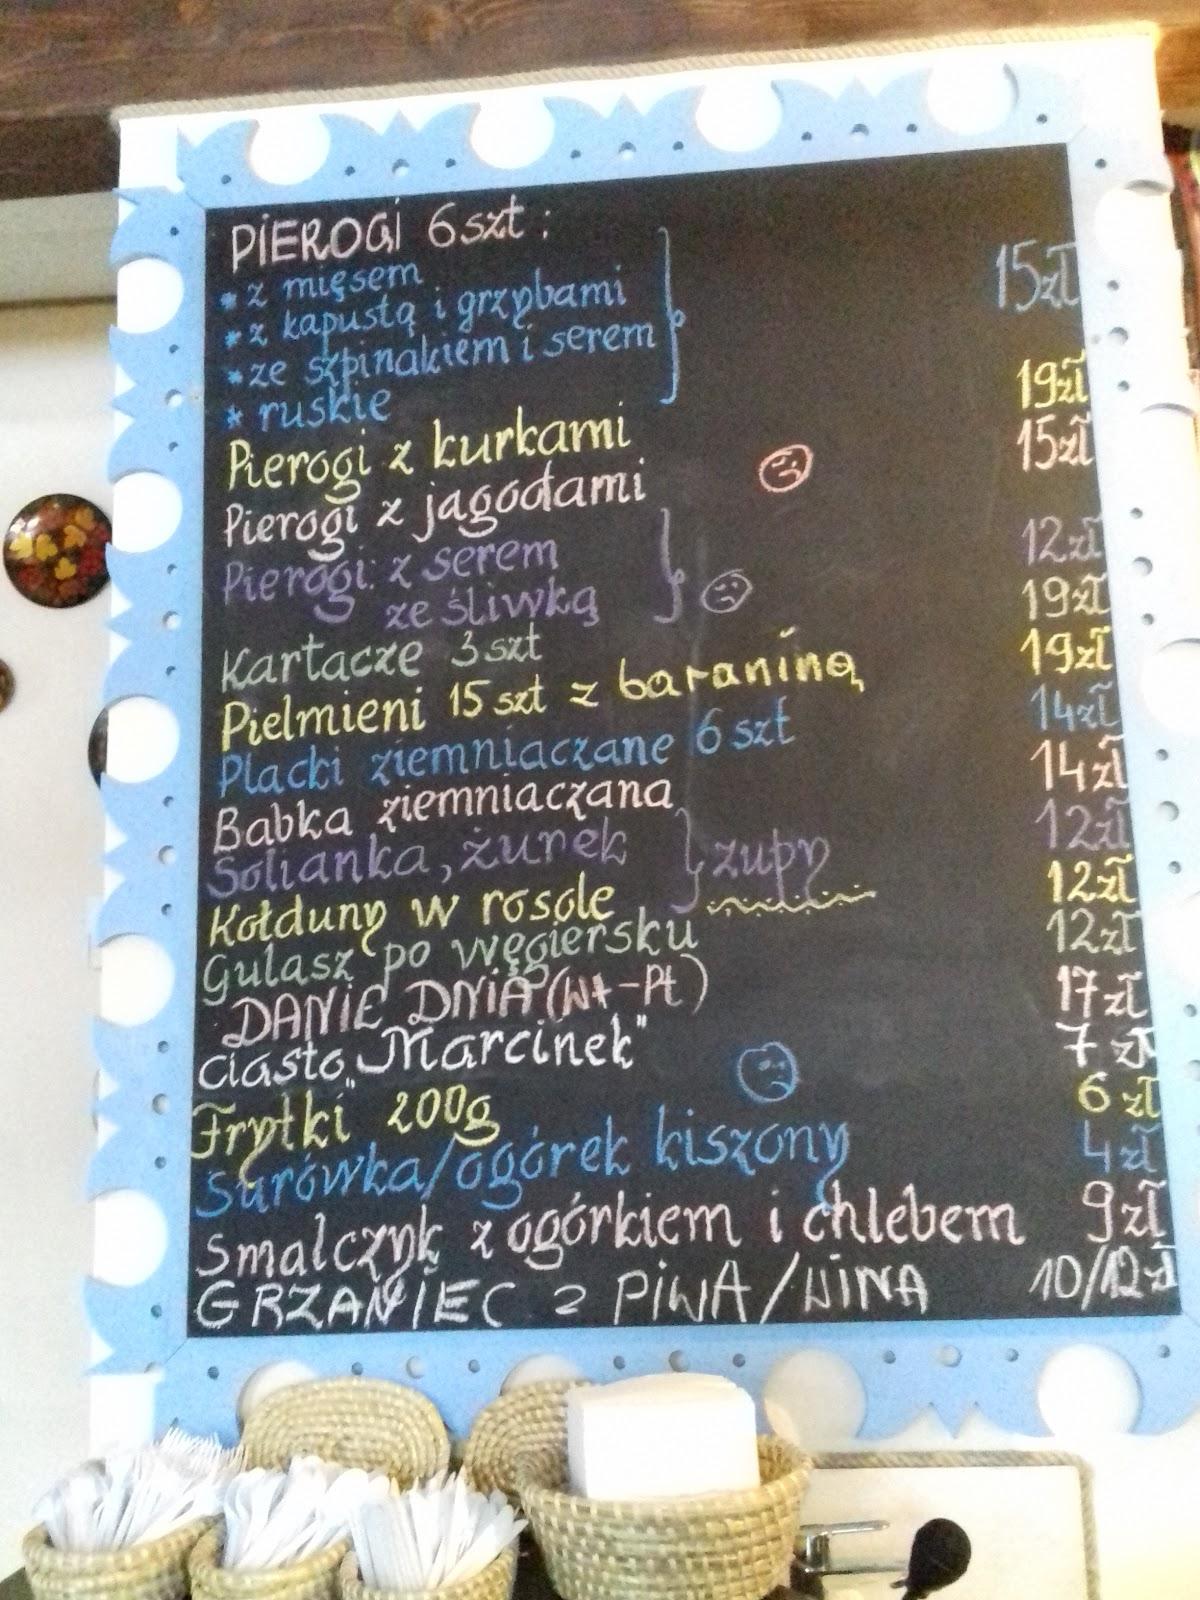 PIEROGI 6szt:
* z mięsem
* z kapustą i grzybami 15zł
* ze szpinakiem i serem
* ruskie
Pierogi z kurkami 19zł
Pierogi z jagodami 15zł
Pierogi: z serem
ze śliwką 12zł
Kartacze 3szt 19zł
Pielmieni 15szt z baraniną 19zł
Placki ziemniaczane 6szt 14zł
Babka ziemniaczana 14zł
Solianka, żurek } zupy 12zł
Kołduny w rosole 12zł
Gulasz po węgiersku 12zł
DANIE DNIA (Wt-Pt) 17zł
Ciasto „Marcinek" 7zł
Frytki 200g 6zł
Surówka/ogórek kiszony 4zł
Smalczyk z ogórkiem i chlebem 9zł
GRZANIEC z PIWA/WINA 10/12zł